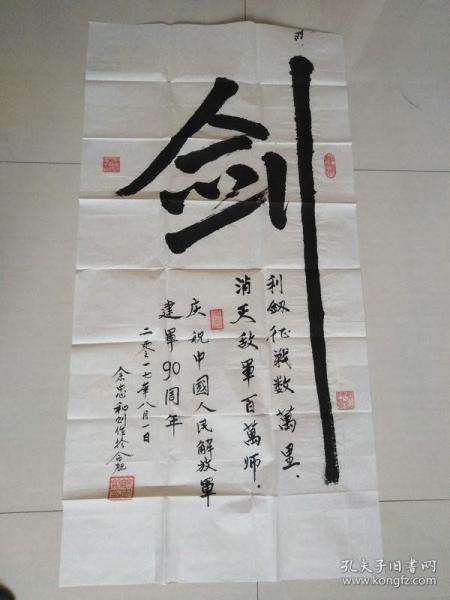 剑
利劔征戰数萬里.
消灭敌軍百萬师.
庆祝中國人民解放軍
建軍90周年
二零一七年八月一日
余忠和创作於合肥
孔夫子旧书网
www.kongfz.com